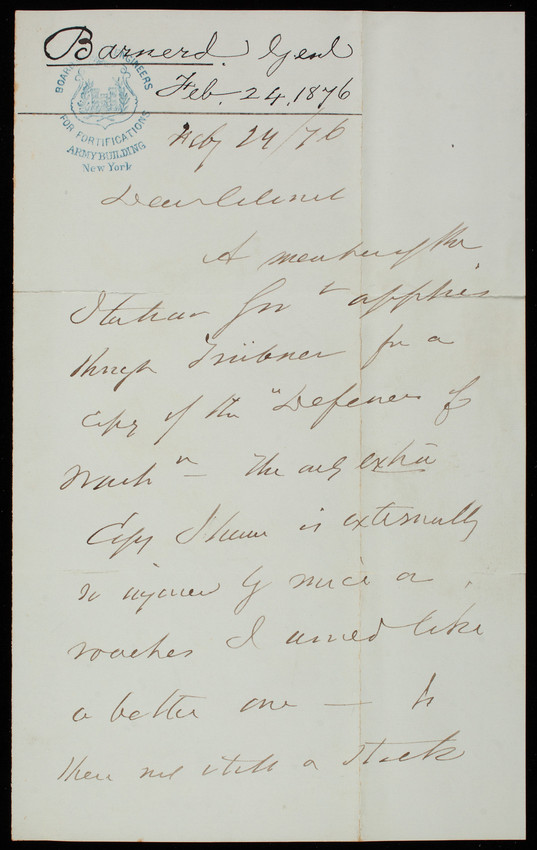 Barnerd. Genl
Feb. 24, 1876
BOARD OF ENGINEERS
FOR FORTIFICATIONS
ARMY BUILDING
New York
Feby 24/76
Dear Colonel
A member of the
Italian Govt applies
through Trübner for a
copy of the "Defences of
Washn – The only extra
Copy I have is externally
so injured by mice or
roaches I would like
a better one — Is
there not still a stock